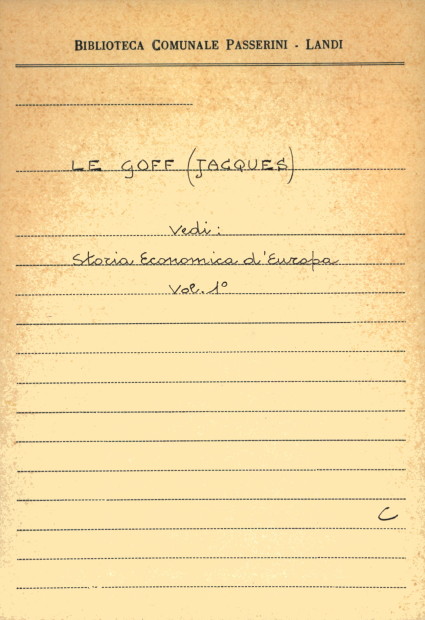 BIBLIOTECA COMUNALE PASSERINI - LANDI
LE GOFF (JACQUES)
Vedi:
Storia Economica d'Europa
Vol. 1°
C